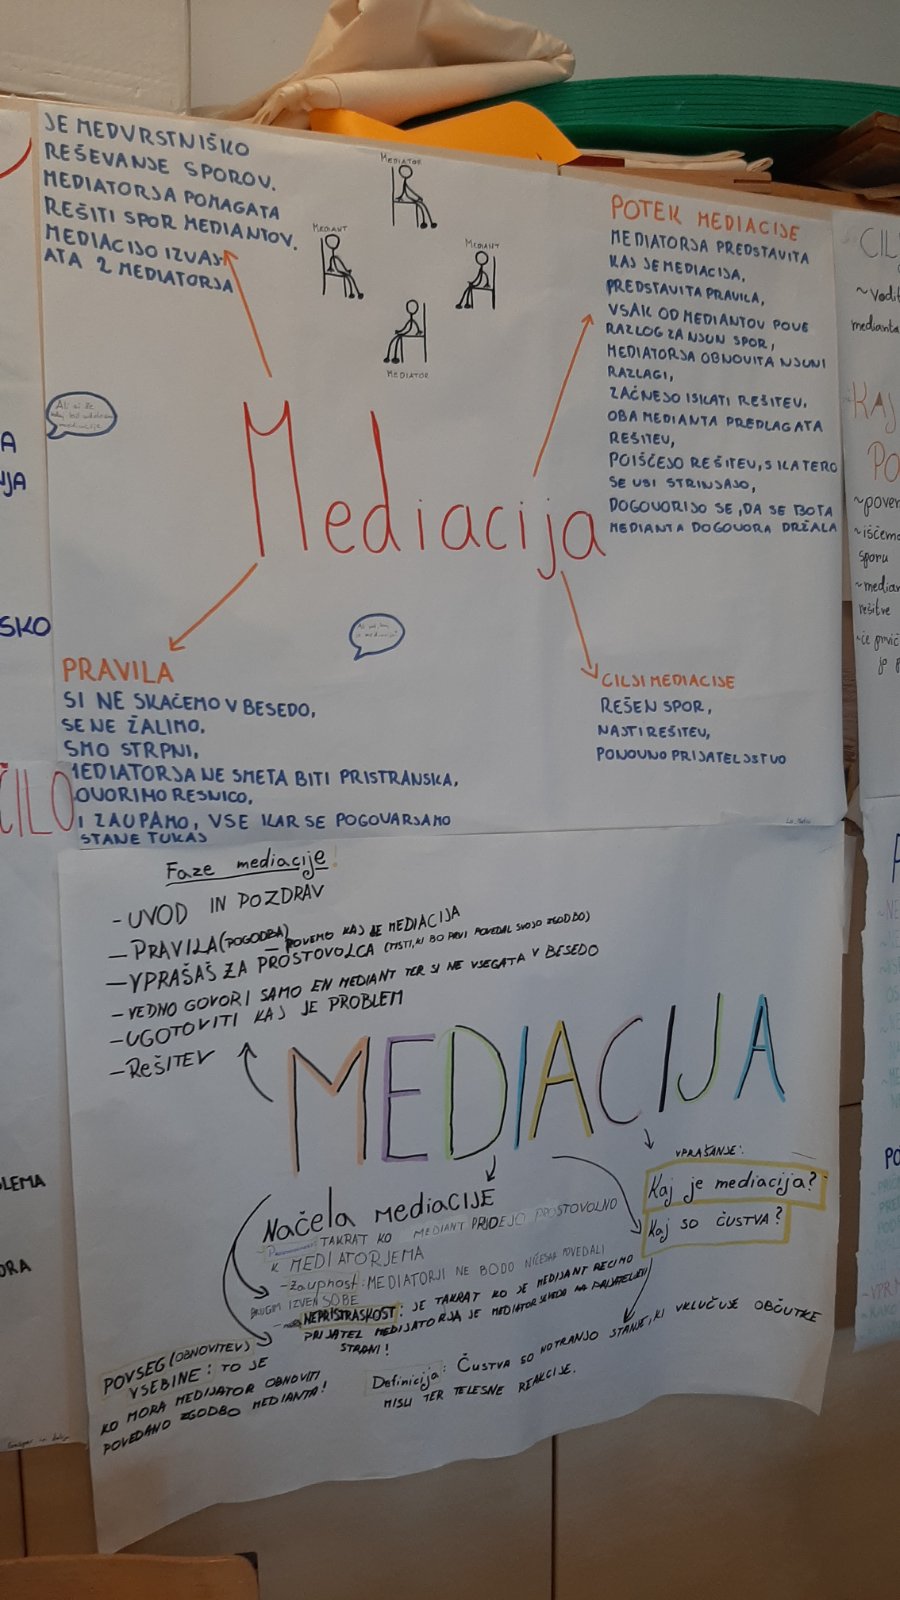 JE MEDVRSTNIŠKO
REŠEVANJE SPOROV.
MEDIATORJA POMAGATA
REŠITI SPOR MEDIANTOV.
MEDIACIJO IZVAJ-
ATA 2 MEDIATORJA
MEDIATOR
MEDIANT
MEDIANT
MEDIATOR
POTEK MEDIACIJE
MEDIATORJA PREDSTAVITA
KAJ JE MEDIACIJA,
PREDSTAVITA PRAVILA,
VSAK OD MEDIANTOV POVE
RAZLOG ZA NJUN SPOR,
MEDIATORJA OBNOVITA NJUNI
RAZLAGI,
ZAČNEJO ISKATI REŠITEV,
OBA MEDIANTA PREDLAGATA
REŠITEV,
POIŠČEJO REŠITEV, S KATERO
SE VSI STRINJAJO,
DOGOVORIJO SE, DA SE BOTA
MEDIANTA DOGOVORA DRŽALA
Mediacija
PRAVILA
SI NE SKAČEMO V BESEDO,
SE NE ŽALIMO,
SMO STRPNI,
MEDIATORJA NE SMETA BITI PRISTRANSKA,
OVORIMO RESNICO,
I ZAUPAMO, VSE KAR SE POGOVARJAMO
STANE TUKAJ
CILJI MEDIACIJE
REŠEN SPOR,
NAJTI REŠITEV,
PONOVNO PRIJATELJSTVO
A
NJA
SKO
ČILO
LEMA
ORA
CIL
~vodit
medianta
KAJ
PO
~pover
~iščemo
sporu
~median
rešitve
~če prvič
jo p
Faze mediacije!
-UVOD IN POZDRAV
-PRAVILA(POGODBA)
-POVEMO KAJ JE MEDIACIJA
-VPRAŠAŠ ZA PROSTOVOLCA (TISTI, KI BO PRVI POVEDAL SVOJO ZGODBO)
-VEDNO GOVORI SAMO EN MEDIANT TER SI NE VSEGATA V BESEDO
-UGOTOVITI KAJ JE PROBLEM
-REŠITEV
MEDIACIJA
VPRAŠANJE:
Kaj je mediacija?
Kaj so čustva?
Načela mediacije
TAKRAT KO MEDIANT PRIDEJO PROSTOVOLNO
K MEDIATORJEMA
-Zaupnost: MEDIATORJI NE BODO NIČESAR POVEDALI
DRUGIM IZVEN SOBE
-NEPRISTRASKOST: JE TAKRAT KO JE MEDIJANT RECIMO
PRIJATEL MEDIJATORJA JE MEDIATOR SEVEDA NA PRIJATELJEVI
STRANI!
POVSEG (OBNOVITEV)
VSEBINE: TO JE
KO MORA MEDIJATOR OBNOVITI
POVEDANO ZGODBO MEDIANTA!
Definicija: ČUSTVA SO NOTRANJO STANJE, KI VKLUČUJE OBČUTKE
MISLI TER TELESNE REAKCIJE.